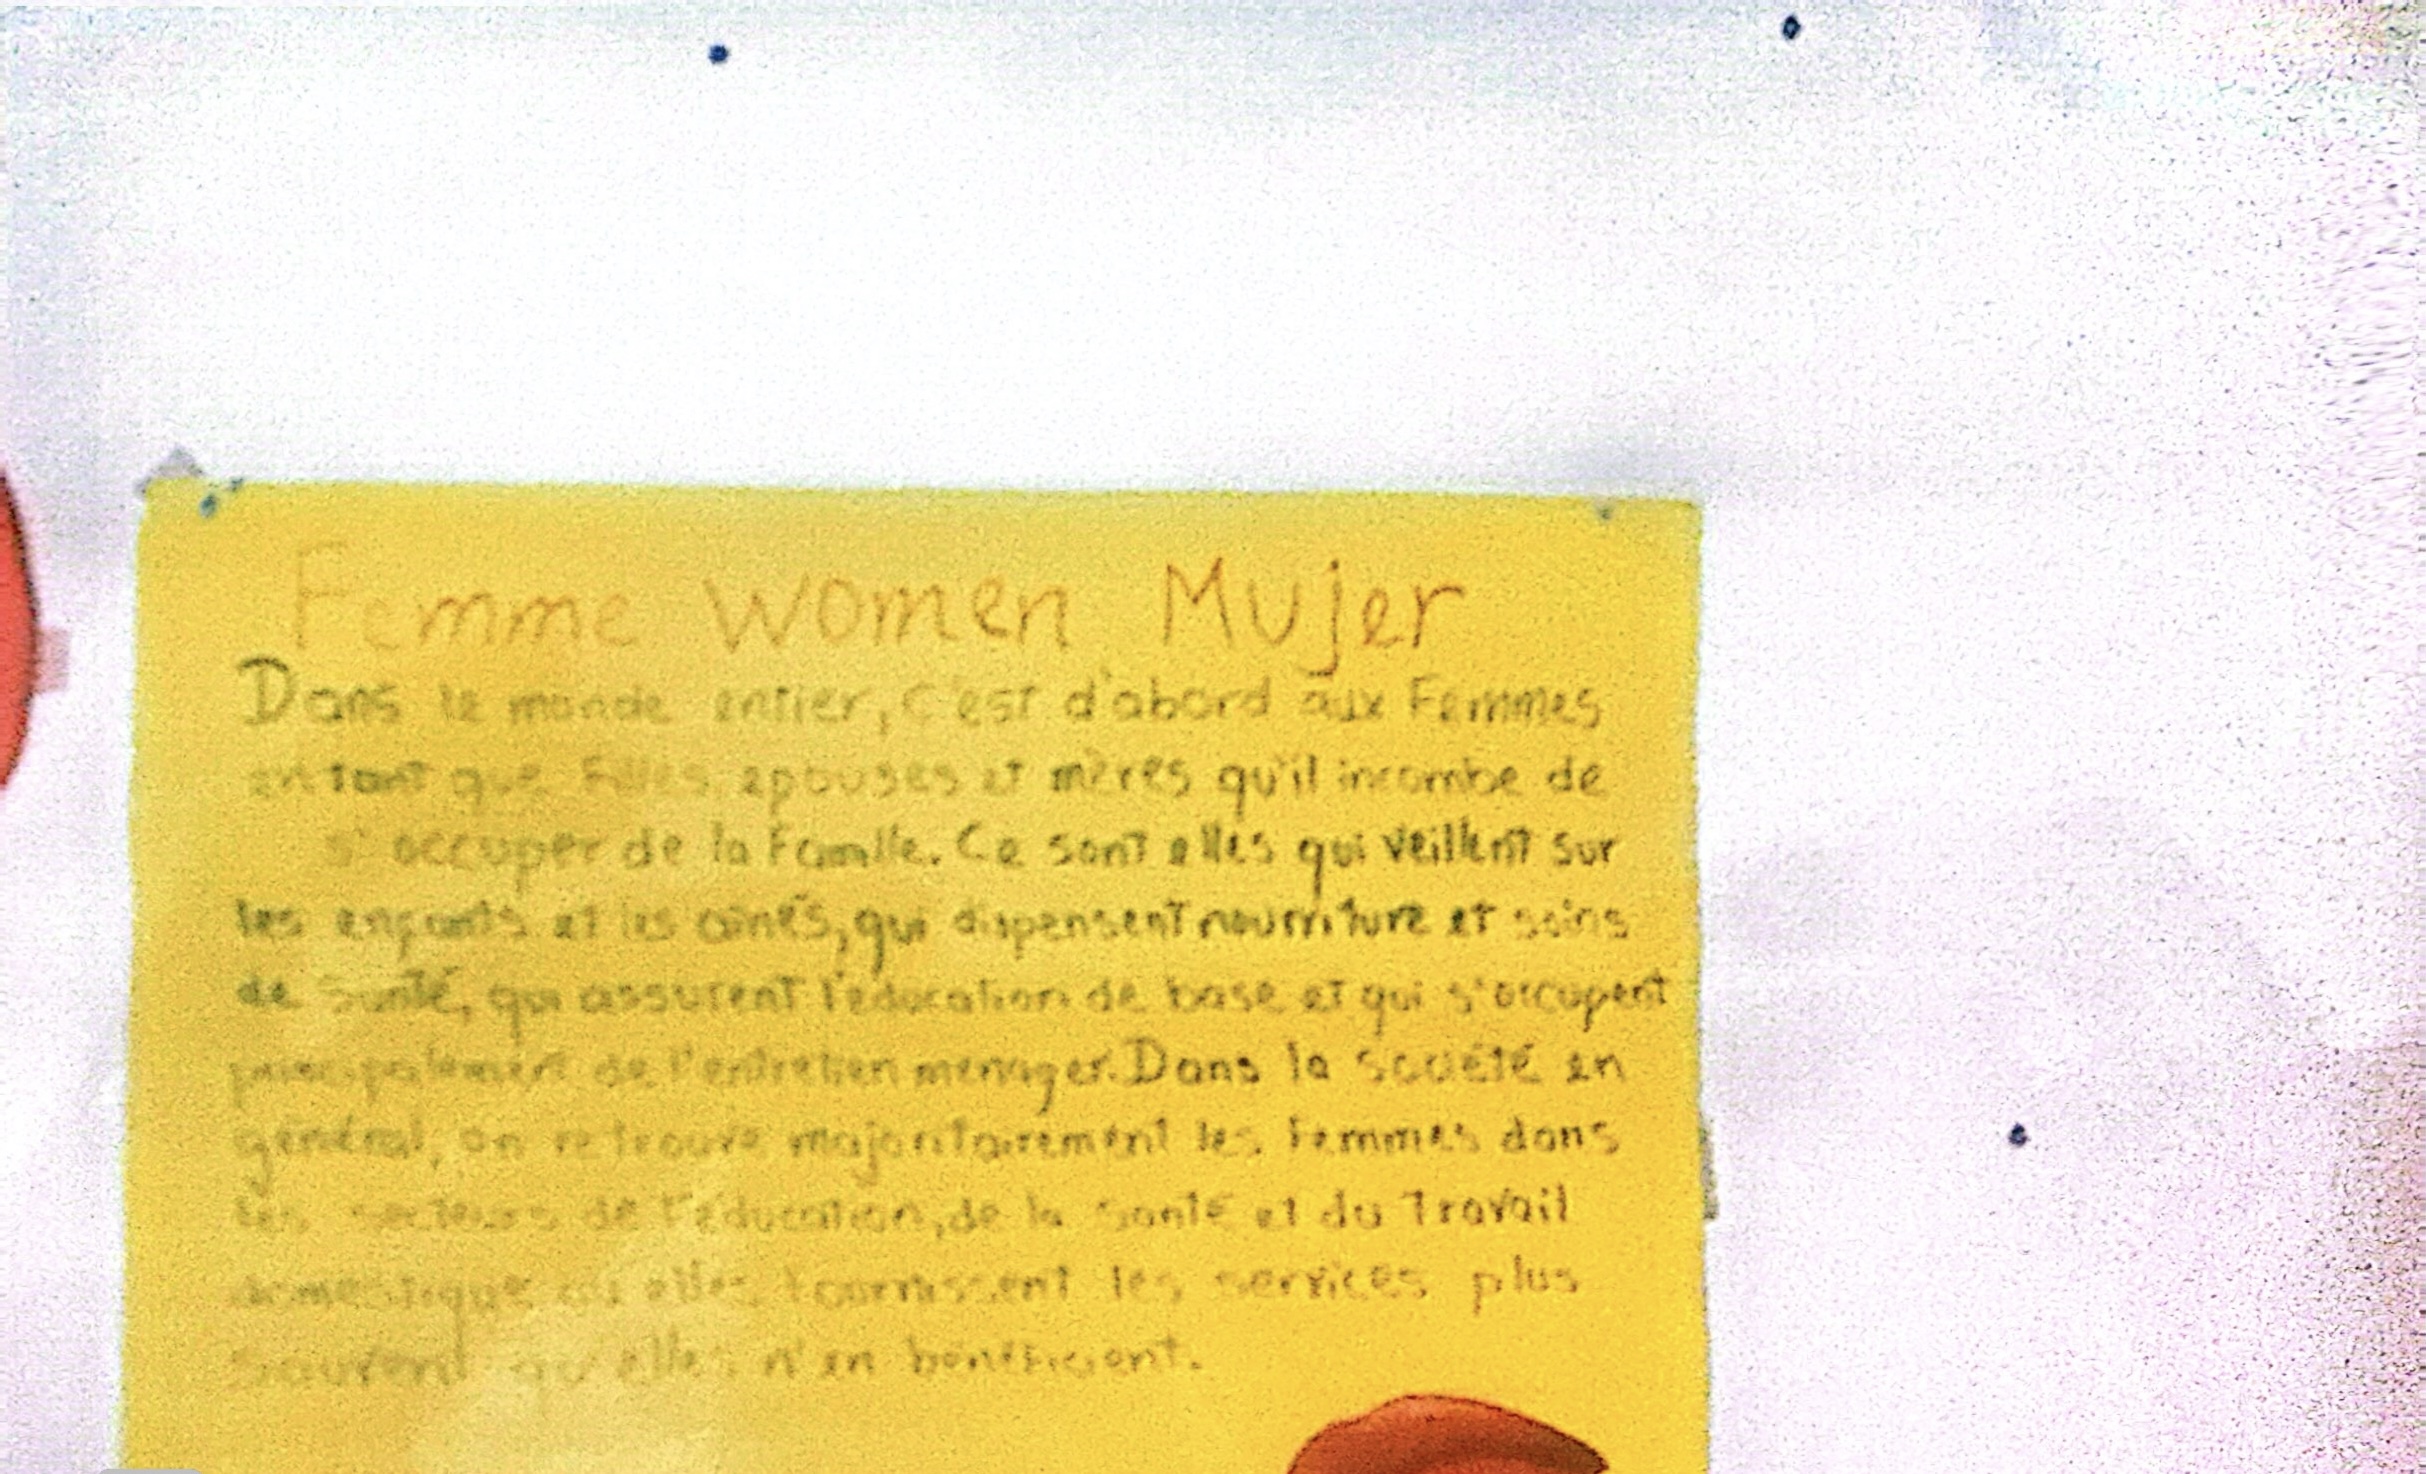 Femme Women Mujer
Dans le monde entier, c'est d'abord aux Femmes
en tant que Filles epouses et mères qu'il incombe de
s'occuper de la Famille. Ce sont elles qui veillent sur
les enfants et les aînés, qui dispensent nourriture et soins
de Santé, qui assurent l'education de base et qui s'occupent
principalement de l'entretien menager. Dans la société en
général, on retrouve majoritairement les Femmes dans
les secteurs de l'éducation, de la Santé et du Travail
domestique où elles fournissent les services plus
Souvent qu'elles n'en bénéficient.